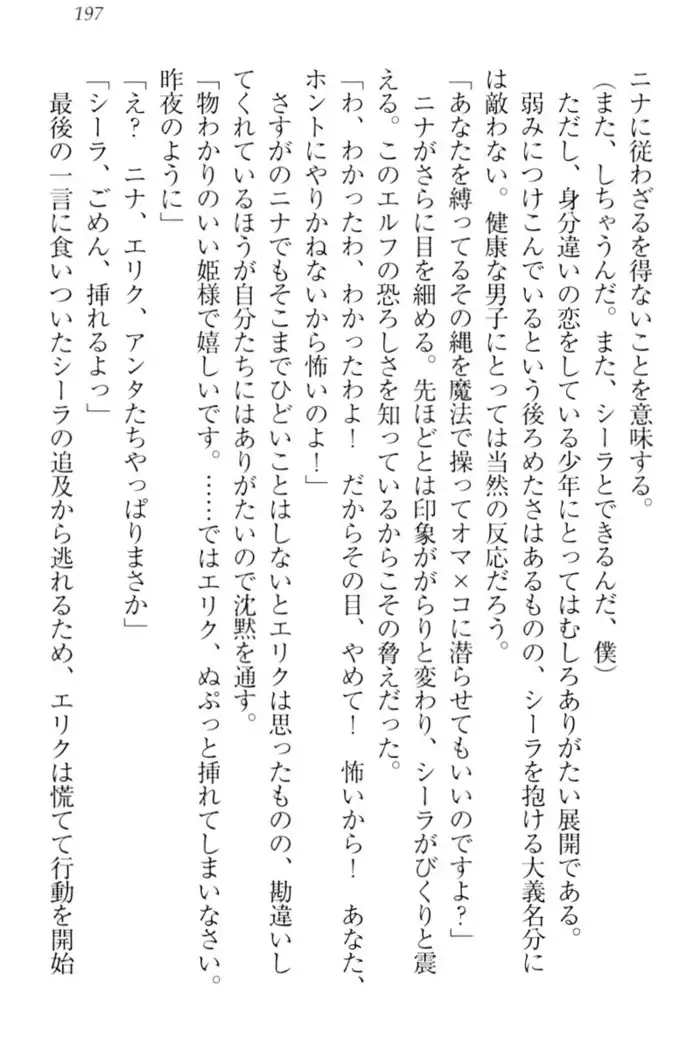 197
ニナに従わざるを得ないことを意味する。
（また、しちゃうんだ。また、シーラとできるんだ、僕）
ただし、身分違いの恋をしている少年にとってはむしろありがたい展開である。
弱みにつけこんでいるという後ろめたさはあるものの、シーラを抱ける大義名分に
は敵わない。健康な男子にとっては当然の反応だろう。
「あなたを縛ってるその縄を魔法で操ってオマ×コに潜らせてもいいのですよ？」
ニナがさらに目を細める。先ほどとは印象ががらりと変わり、シーラがびくりと震
える。このエルフの恐ろしさを知っているからこその脅えだった。
「わ、わかったわ、わかったわよ！　だからその目、やめて！　怖いから！　あなた、
ホントにやりかねないから怖いのよ！」
さすがのニナでもそこまでひどいことはしないとエリクは思ったものの、勘違いし
てくれているほうが自分たちにはありがたいので沈黙を通す。
「物わかりのいい姫様で嬉しいです。……ではエリク、ぬぷっと挿れてしまいなさい。
昨夜のように」
「え？　ニナ、エリク、アンタたちやっぱりまさか」
「シーラ、ごめん、挿れるよっ」
最後の一言に食いついたシーラの追及から逃れるため、エリクは慌てて行動を開始